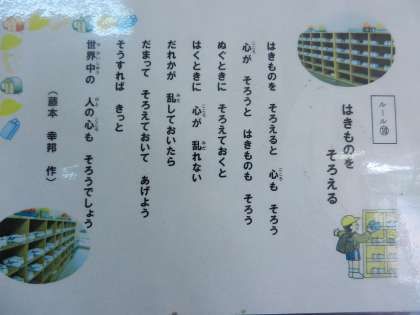 ルール⑩
はきものを
そろえる
はきものを そろえると 心も そろう
心が そろうと はきものも そろう
ぬぐときに そろえておくと
はくときに 心が 乱れない
だれかが 乱しておいたら
だまって そろえておいて あげよう
そうすれば きっと
世界中の 人の心も そろうでしょう
(藤本 幸邦 作)